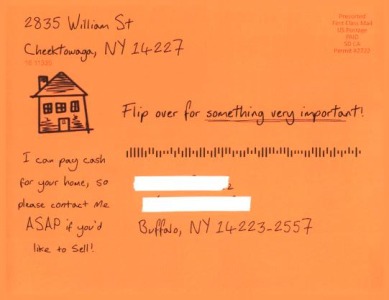 2835 William St
Cheektowaga, NY 14227
Presorted
First Class Mail
US Postage
PAID
Flip over for something very important!
I can pay cash
for your home, so
please contact me
ASAP if you'd
like to sell!
Buffalo, NY 14223-2557